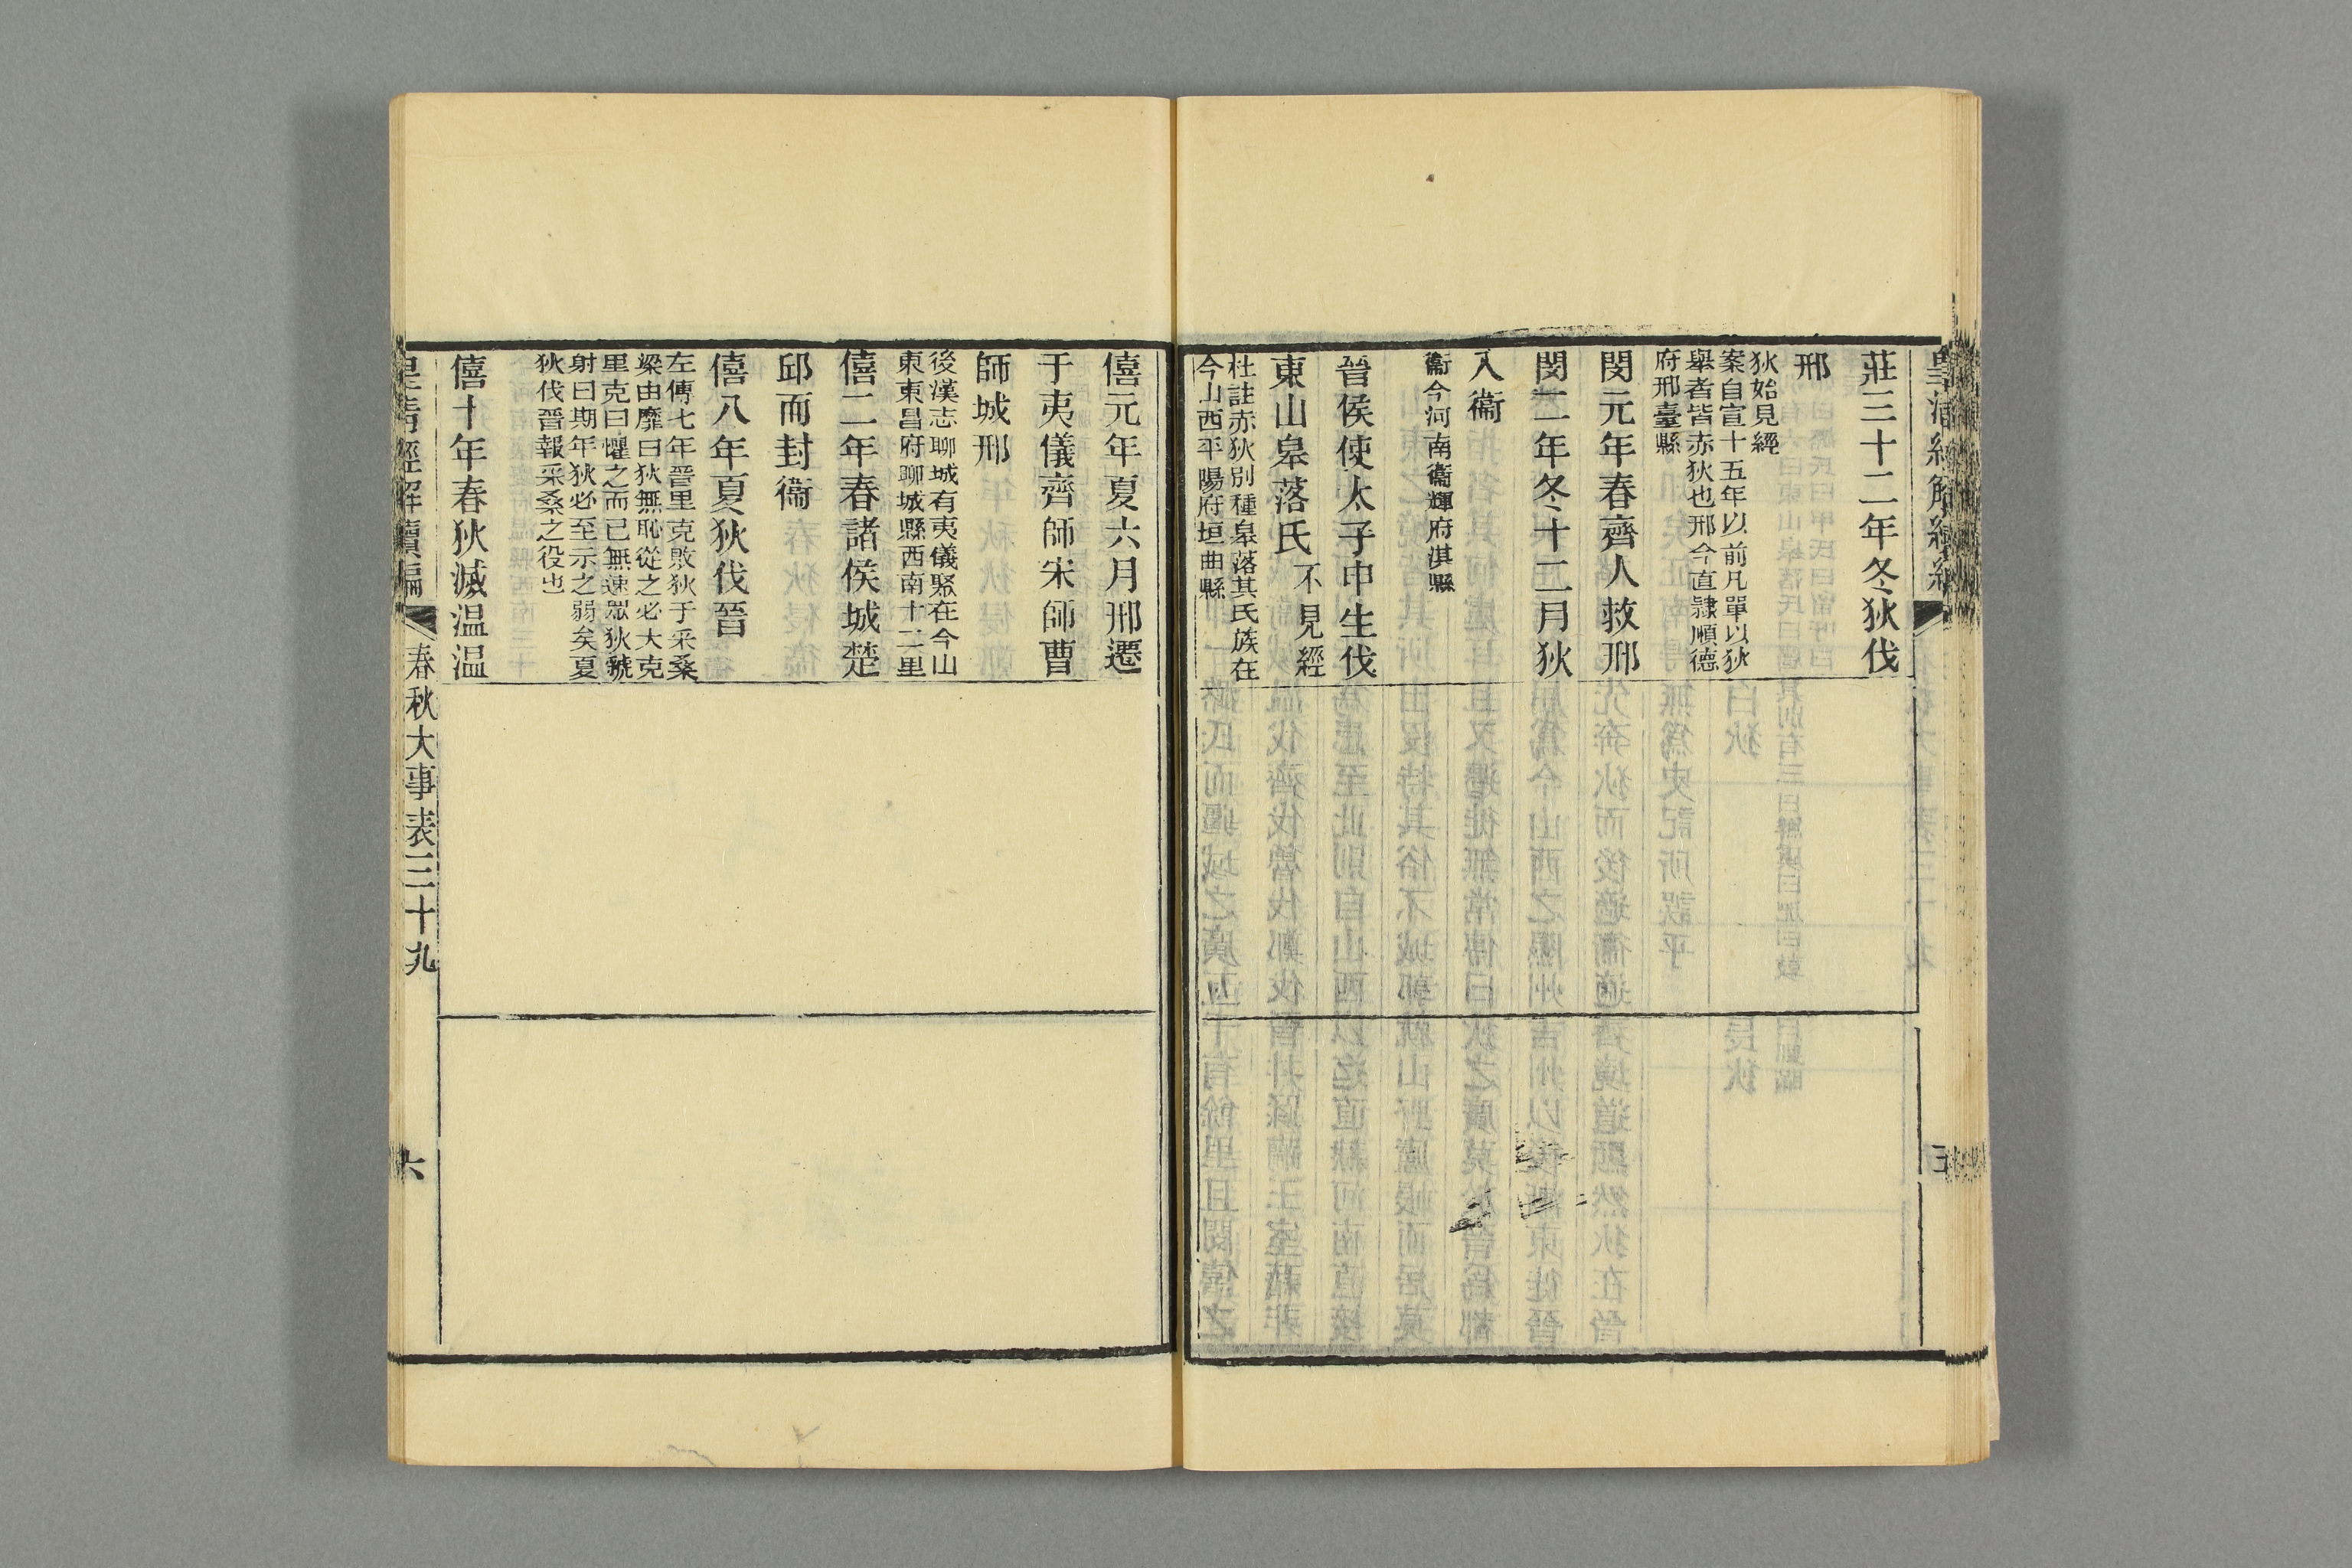 莊三十二年冬狄伐
邢
狄始見經
案自宣十五年以前凡單以狄
舉者皆赤狄也邢今直隸順德
府邢臺縣
閔元年春齊人救邢
閔二年冬十二月狄
入衞
衞今河南衞輝府淇縣
晉侯使太子申生伐
東山皋落氏不見經
杜註赤狄別種皋落其氏族在
今山西平陽府垣曲縣
僖元年夏六月邢遷
于夷儀齊師宋師曹
師城邢
後漢志聊城有夷儀聚在今山
東東昌府聊城縣西南十二里
僖二年春諸侯城楚
邱而封衞
僖八年夏狄伐晉
左傳七年晉里克敗狄于采桑
梁由靡曰狄無恥從之必大克
里克曰懼之而已無速眾狄虢
射曰期年狄必至示之弱矣夏
狄伐晉報采桑之役也
僖十年春狄滅温温
皇清經解續編
春秋大事表三十九
六